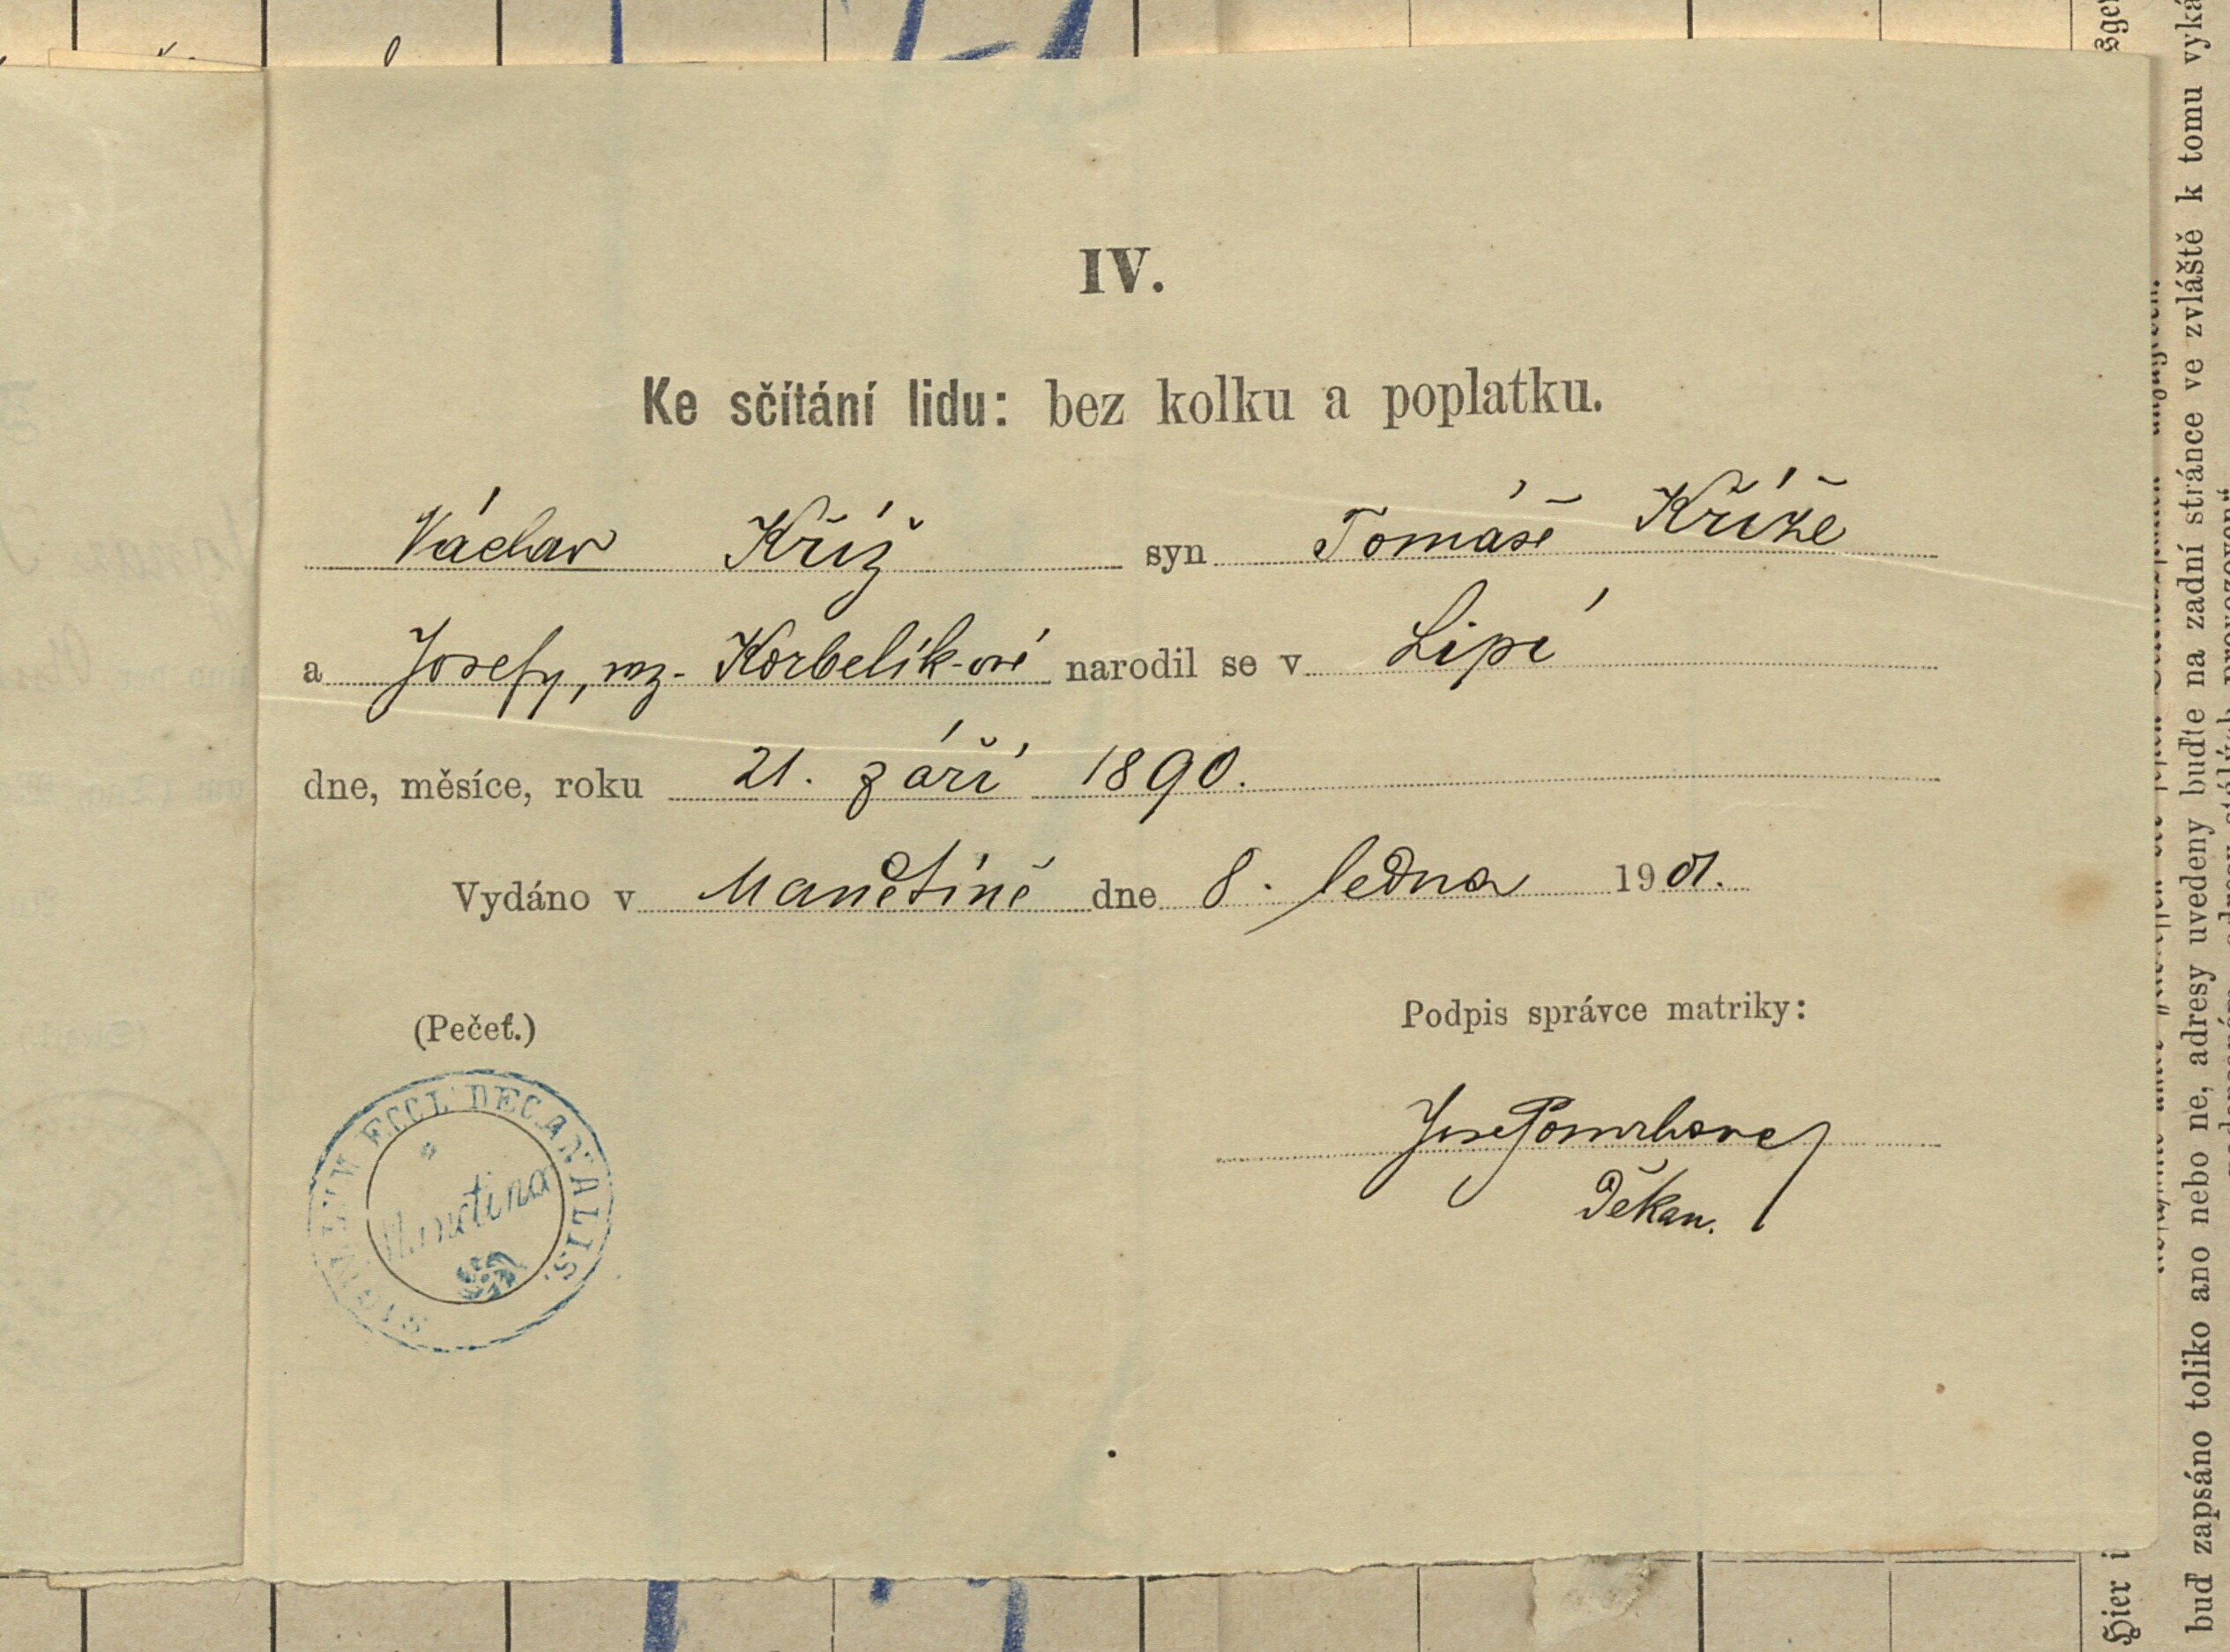 IV.
Ke sčítání lidu: bez kolku a poplatku.
Václav Kříž syn Tomáše Kříže
a Josefy, roz. Korbelík-ové narodil se v Lipí
dne, měsíce, roku 21. září 1890.
Vydáno v Manětíně dne 8. ledna 1901.
(Pečeť.)
Podpis správce matriky:
Děkan.
ECCL DECANALIS.
Manetina
buď zapsáno toliko ano nebo ne, adresy uvedeny buďte na zadní stránce ve zvláště k tomu
Hier